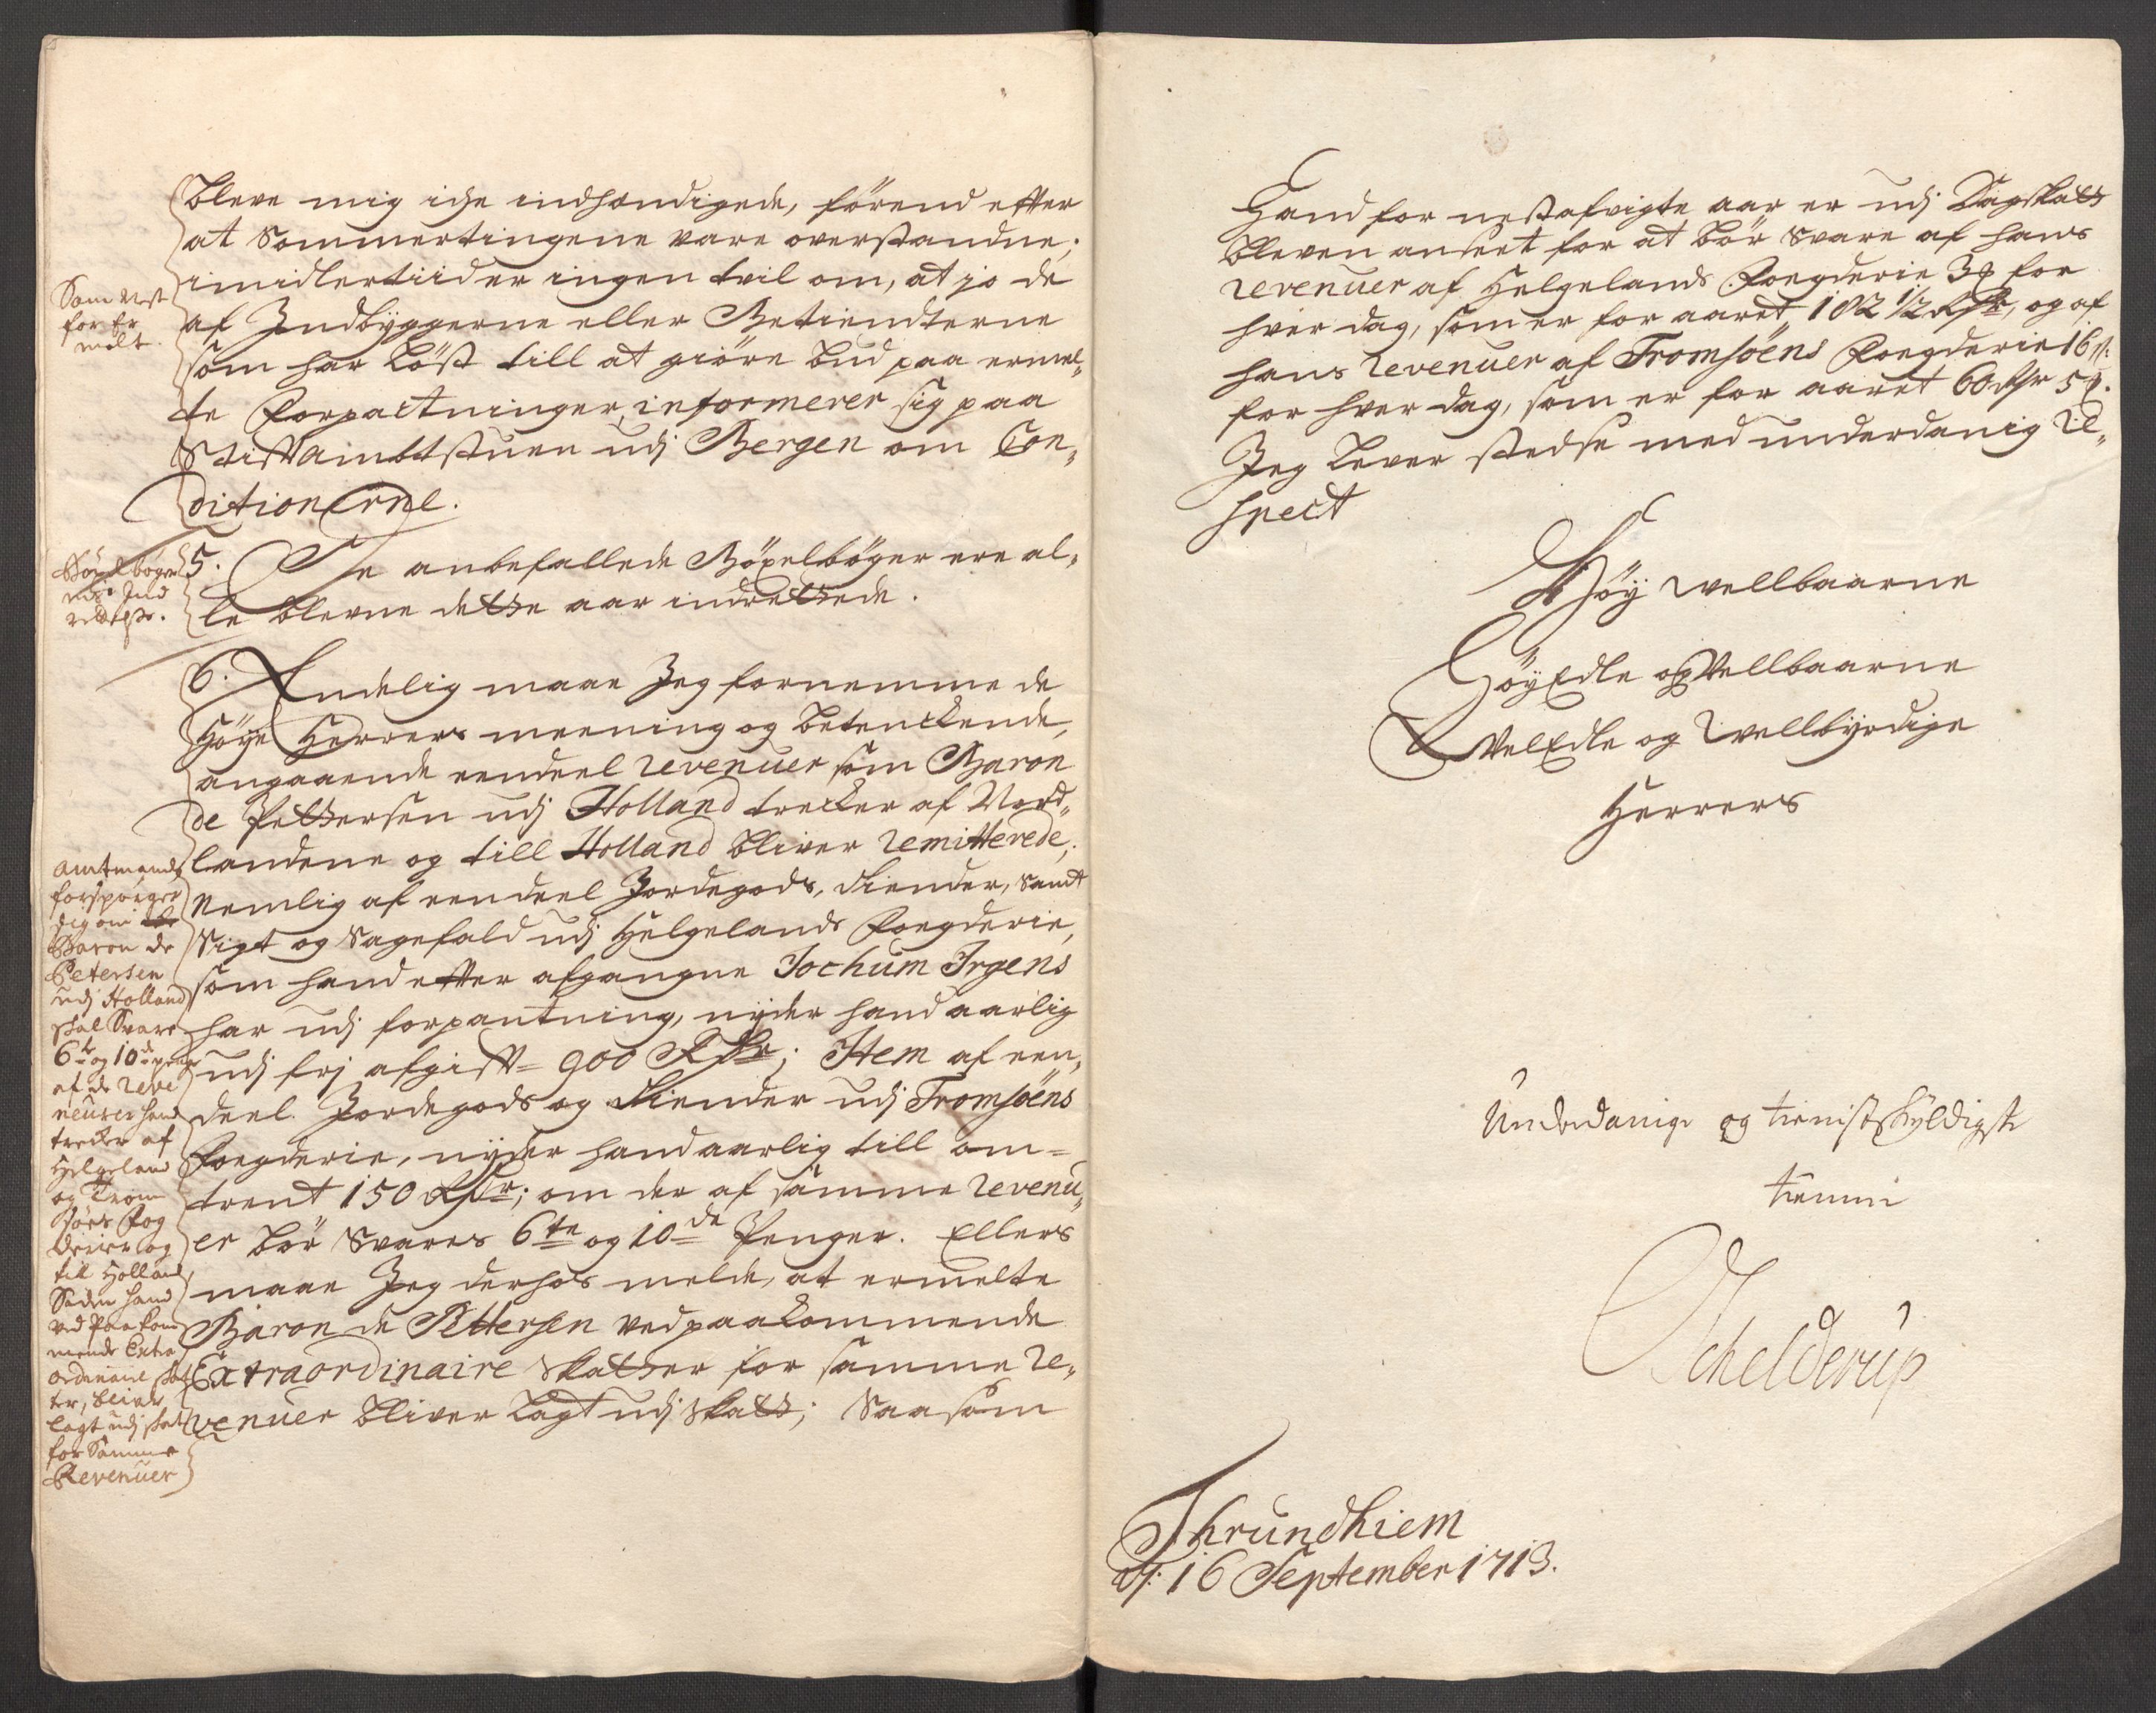 bleve mig iche indhændigede, förend efter
at Sommertingene vare overstandne;
imidlertiid er ingen tvil om, at jo de
af Indbyggerne eller Betiendterne
som har Löst till at giöre bud paa ermel-
te Forpactninger, informerer sig paa
Stiftambtstuen udj Bergen om Con-
ditionerne.
5. De anbefallede Böxelböger ere al-
le blevne dette aar indrettede.
6. Endelig maae Jeg fornemme de
Höye Herrers meening og betenckende,
angaaende eendeel revenuer som Baron
de Pettersen udj Holland trecker af Nord-
landene og till Holland bliver remitterede,
Nemlig af eendeel Jordegods, tiender, samt
Sigt og Sagefald udj Helgelands Fogderie,
som hand efter afgangne Jochum Irgens
har udj forpantning, nyder hand aarlig
udj frj afgift 900 Rdr; Item af een-
deel Jordegods og tiender udj Tromsöens
Fogderie, nyder hand aarlig till om-
trent 150 Rdr; om der af samme revenu-
er bör Svares 6te og 10de Penger. Ellers
maae Jeg derhos melde, at ermelte
Baron de Pettersen ved paakommende
Extraordinaire skatter for samme re-
venuer bliver lagt udj skatt; Saasom
Som Nest
for Er
melt.
Böxelböger
ind
rettelse.
Amtmands
forspörger
sig om
Baron de
Petersen
udj Holland
skal Svare
6te og 10de penge
af de reve
neurer hand
trecker af
Helgeland
og Trom
söens Fog
derier og
till Holland
Saden hand
ved Paakom
mende Extra
ordinaire skat
ter, bliver
lagt udj skat
for Samme
Revenuer
Hand for nestafvigte aar er udj Dagskatt
bleven anseet for at bör svare af hans
revenuer af Helgelands Fogderie 3 ß for
hver dag, som er for aaret 182 1/2 Rdr, og af
hans revenuer af Tromsöens Fogderie 16 ß:
for hver dag, som er for aaret 60 Rdr 5 ß.
Jeg lever stedse med underdanig re-
spect
Höy wellbaarne
HöyEdle og Wellbaarne
VelEdle og wellbyrdige
Herrers
Underdanige og tienistskyldigste
tienner
Schelderup
Thrundhiem
d: 16 September 1713.